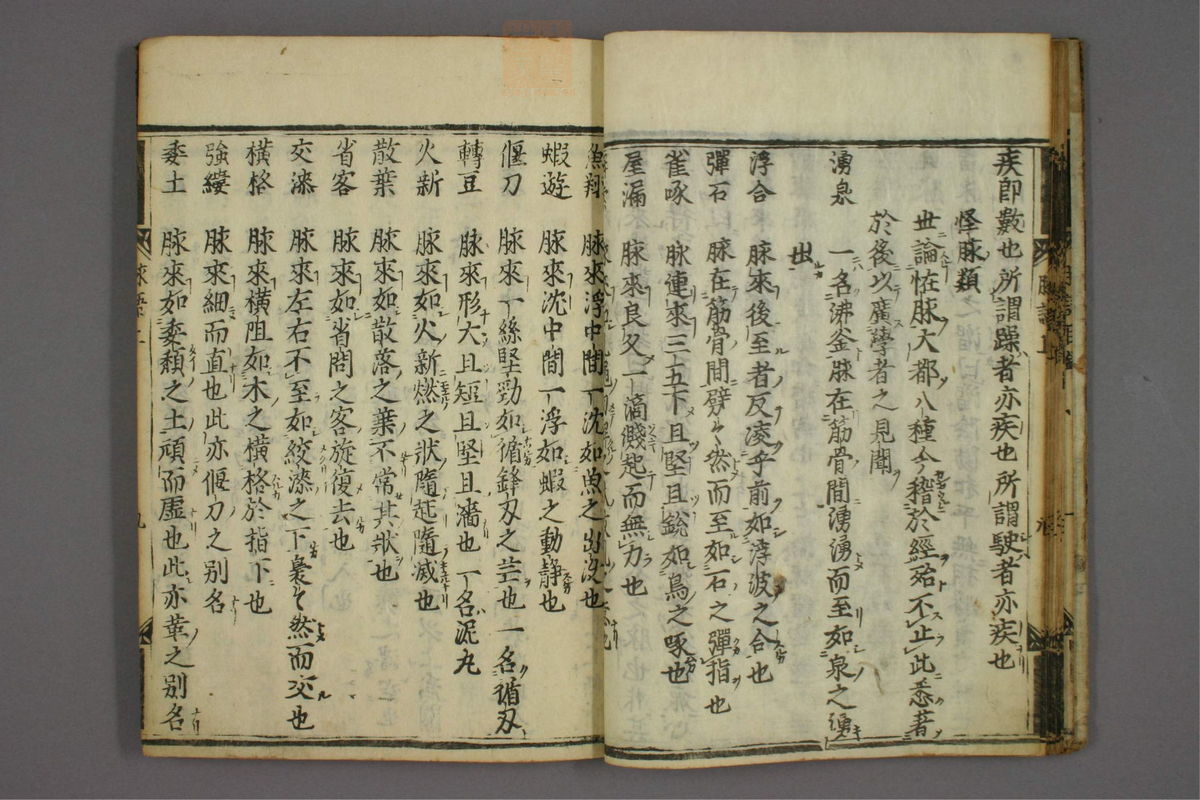 疾即數也所謂躁者亦疾也所謂駛者亦疾也
怪脉類
世論怪脉大都八種今稽於經殆不止此悉著
於後以廣學者之見聞
湧泉 一名沸釜脉在筋骨間湧湧而至如泉之湧
出
浮合 脉來後至者反凌乎前如浮波之合也
彈石 脉在筋骨間劈々然而至如石之彈指也
雀啄 脉連來三五下且堅且銳如鳥之啄也
屋漏 脉來良久一滴濺起而無力也
魚翔 脉來浮中間一沈如魚之出沒也
蝦遊 脉來沈中間一浮如蝦之動靜也
偃刀 脉來一絲堅勁如循鋒刃之芒也一名循刃
轉豆 脉來形大且短且堅且濇也一名泥丸
火新 脉來如火新燃之狀隨起隨滅也
散葉 脉來如散落之葉不常其狀也
省客 脉來如省問之客旋復去也
交漆 脉來左右不至如絞漆之下裊々然而交也
橫格 脉來橫阻如木之橫格於指下也
強縷 脉來細而直也此亦偃刀之别名
委土 脉來如委頹之土頑而虛也此亦革之别名